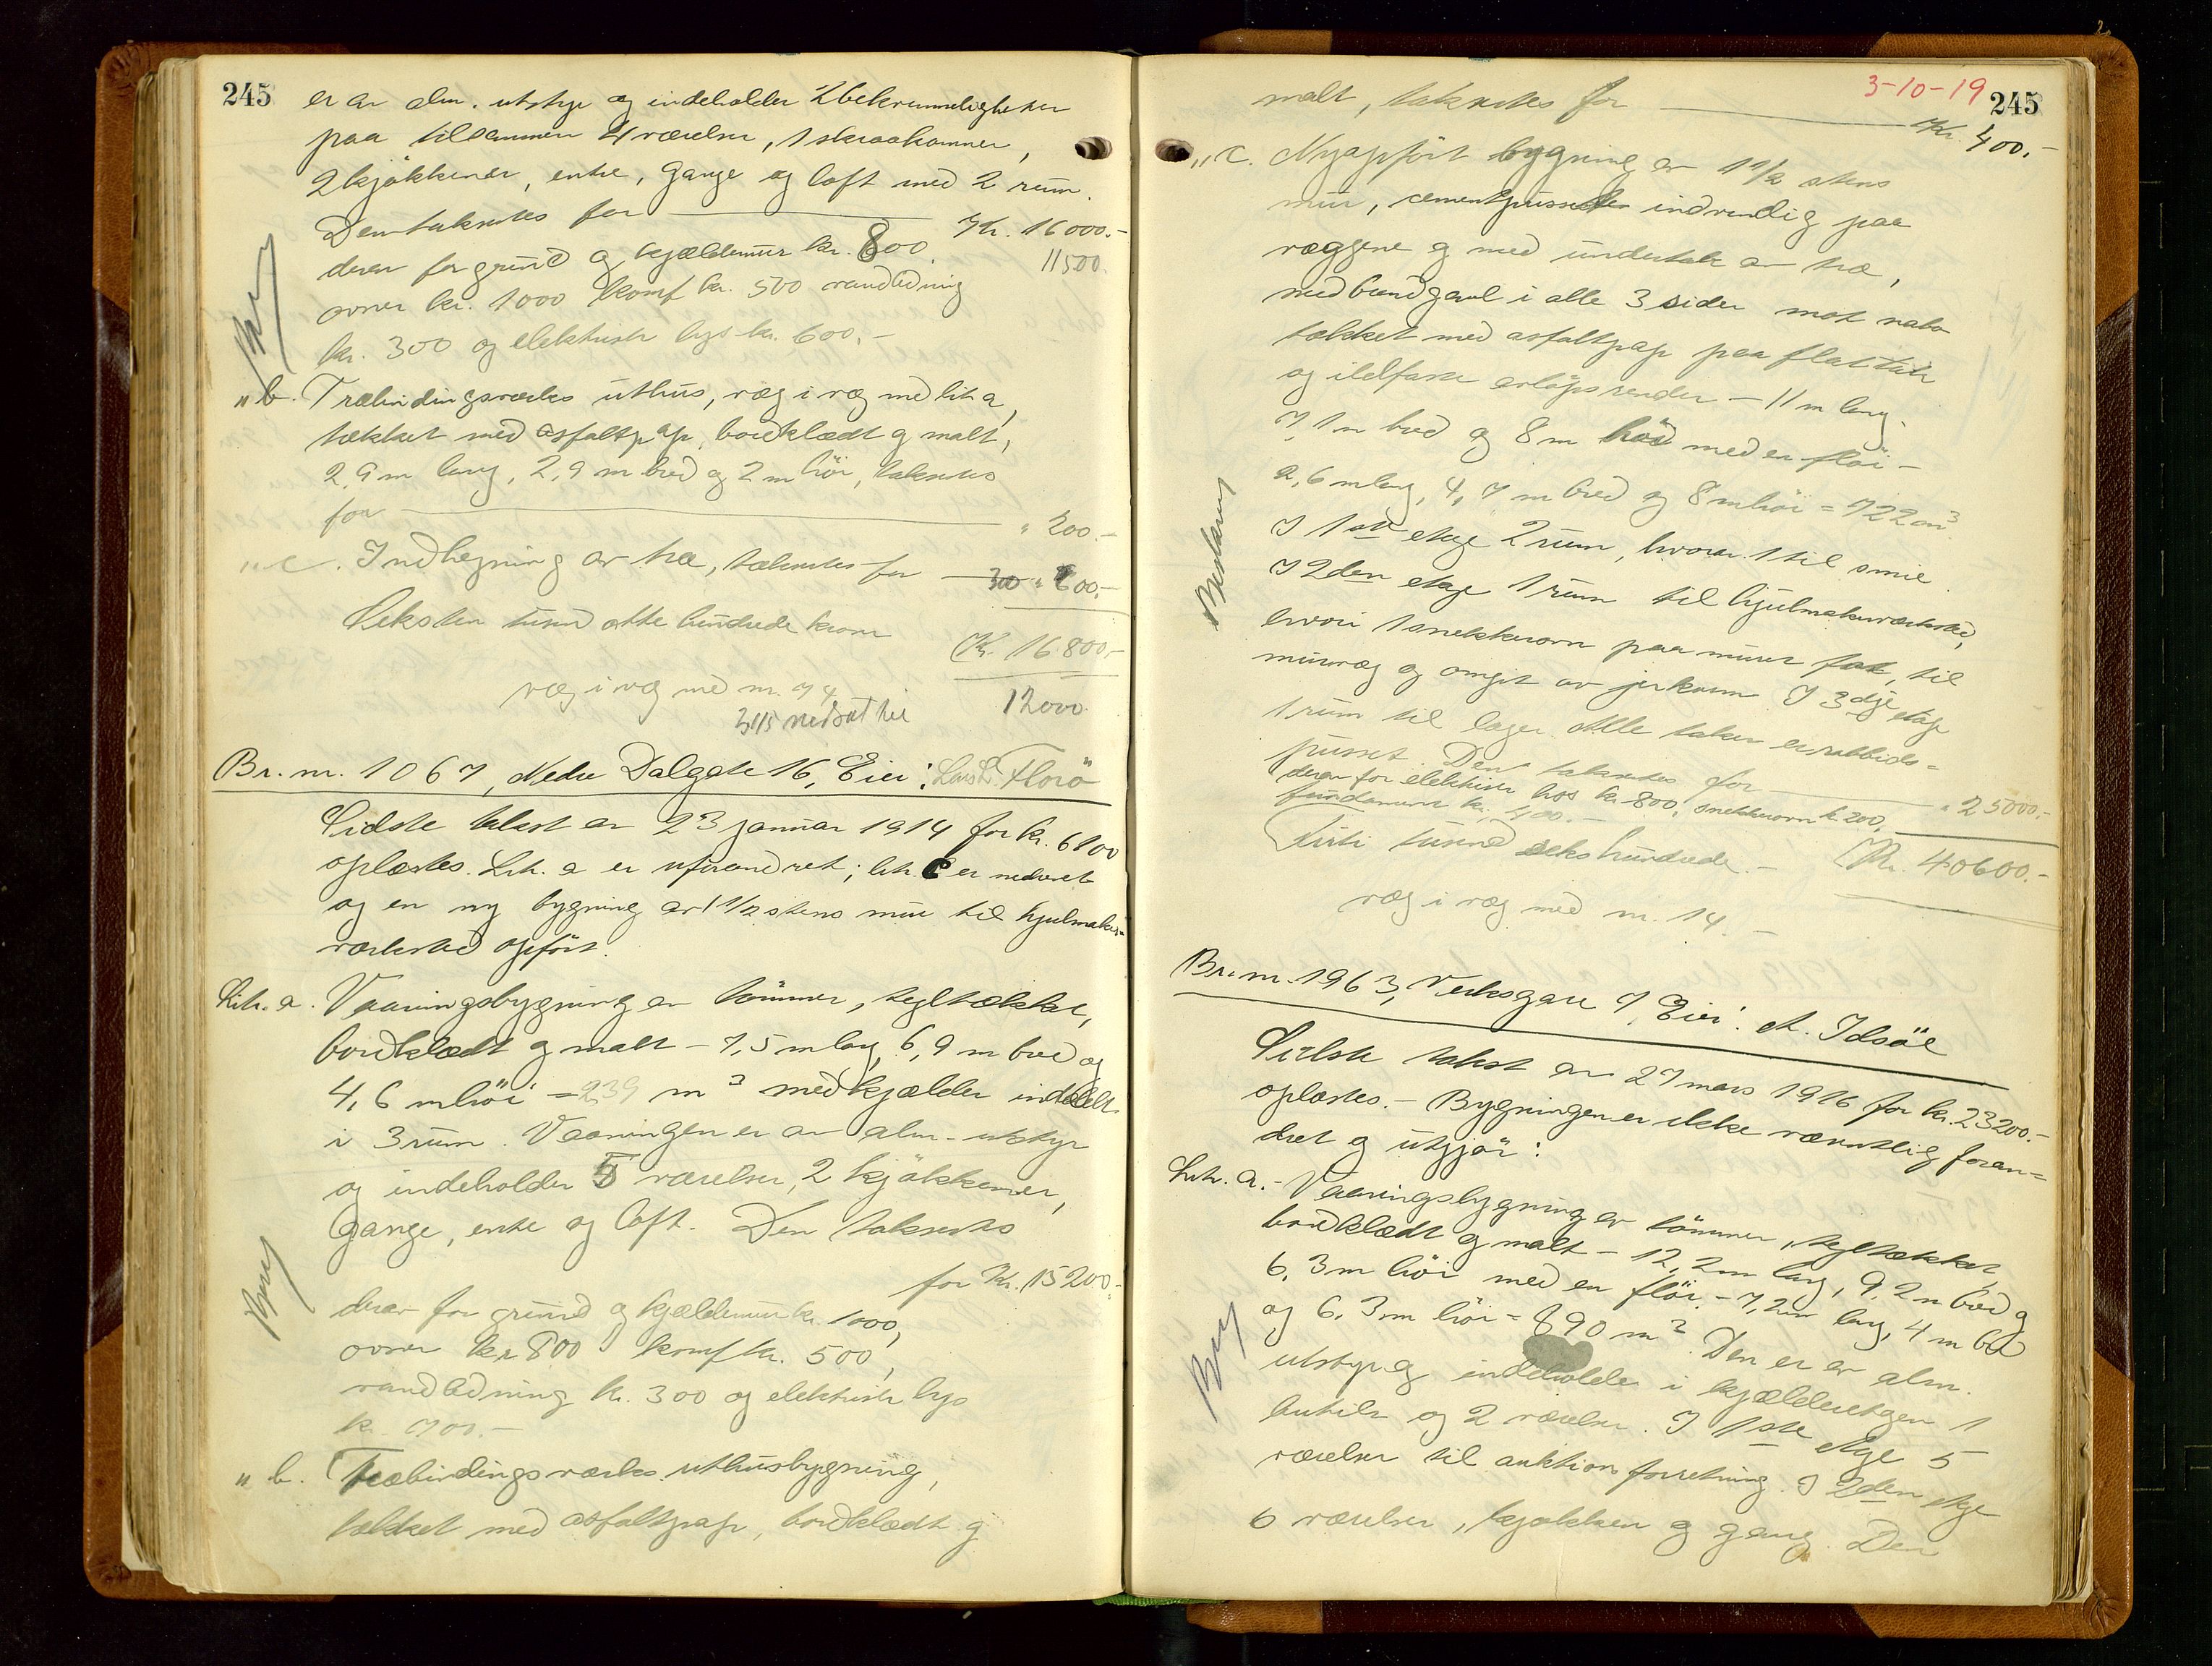 245
er av alm. utstyr og indeholder 2 bekvemmeligheter
paa tilsammen 4 værelser, 1 skraakammer,
2 kjökkener, entre, gange og loft med 2 rum.
Den takseres for Kr. 16000.-
derav for grund og kjældermur kr. 800, 11500.
ovner kr. 1000 komf kr. 500 vandledning
kr. 300 og elektrisk lys kr. 600.-
" b. Træbindingsverks uthus, væg i væg med lit. a,
tækket med asfaltpap, bordklædt og malt,
2,9 m lang, 2,9 m bred og 2 m höi, takseres
for " 200.-
" c. Indhegning av træ, takseres for 300 " 600.-
Seksten tusind otte hundrede kroner Kr. 16800.-
væg i væg med nr. 74
3/15 nedsat til 12000.
Br. nr. 1067, Nedre Dalgate 16, Eier: Lars L. Florö
Sidste takst av 23 januar 1914 for kr. 6100
oplæstes. Lit. a er uforandret; lit. c er nedrevet
og en ny bygning av 1 1/2 stens mur til hjulmaker-
verksted opfört.
Lit. a. Vaaningsbygning av tömmer, tegltækket,
bordklædt og malt - 7,5 m lang, 6,9 m bred og
4,6 m höi = 239 m3 med kjælder inddelt
i 3 rum. Vaaningen er av alm. utstyr
og indeholder 5 værelser, 2 kjökkener,
gange, entre og loft. Den takseres
for Kr. 15200.-
derav for grund og kjældermur kr. 1000,
ovner kr 800 komf kr. 500,
vandledning kr. 300 og elektrisk lys
kr. 700.-
" b. Træbindingsverks uthusbygning,
tækket med asfaltpap, bordklædt og
3-10-19 245
malt, takseres for Kr. 400.-
" c. Nyopfört bygning av 1 1/2 stens
mur, cementpusset indvendig paa
væggene og med undertak av træ,
med brandgavl i alle 3 sider mot nabo
tækket med asfaltpap paa flatt tak
og ildfaste avlöpsrender - 11 m lang,
7,1 m bred og 8 m höi med en flöi -
2,6 m lang, 4,7 m bred og 8 m höi = 722 m3.
I 1ste etage 2 rum, hvorav 1 til smie
I 2den etage 1 rum til hjulmakerverksted,
hvori 1 snekkerovn paa muret fot, til
murvæg og omgit av jerkarm I 3dje etage
1 rum til lager. Alle taker er rabbids-
pusset. Den takseres for " 25000.-
derav for elektrisk lys kr. 800, snekkerovn kr. 200,
fundament kr. 400.-
Firti tusind seks hundrede.- Kr. 40600.-
væg i væg med nr. 14.-
Br. nr. 1963, Verksgaten 7, Eier: A. Idsöe
Sidste takst av 27 mars 1916 for kr. 23200.-
oplæstes.- Bygningen er ikke væsentlig foran-
dret og utgjör:
Lit. a.- Vaaningsbygning av tömmer, tegltækket,
bordklædt og malt - 12,2 m lang, 9,2 m bred og
6,3 m höi med en flöi - 7,2 m lang, 4 m bred
og 6,3 m höi = 890 m3. Den er av alm.
utstyr og indeholder i kjælderetagen 1
butik og 2 værelser. I 1ste etage 5
værelser til auktionsforretning. I 2den etage
6 værelser, kjökken og gang. Den